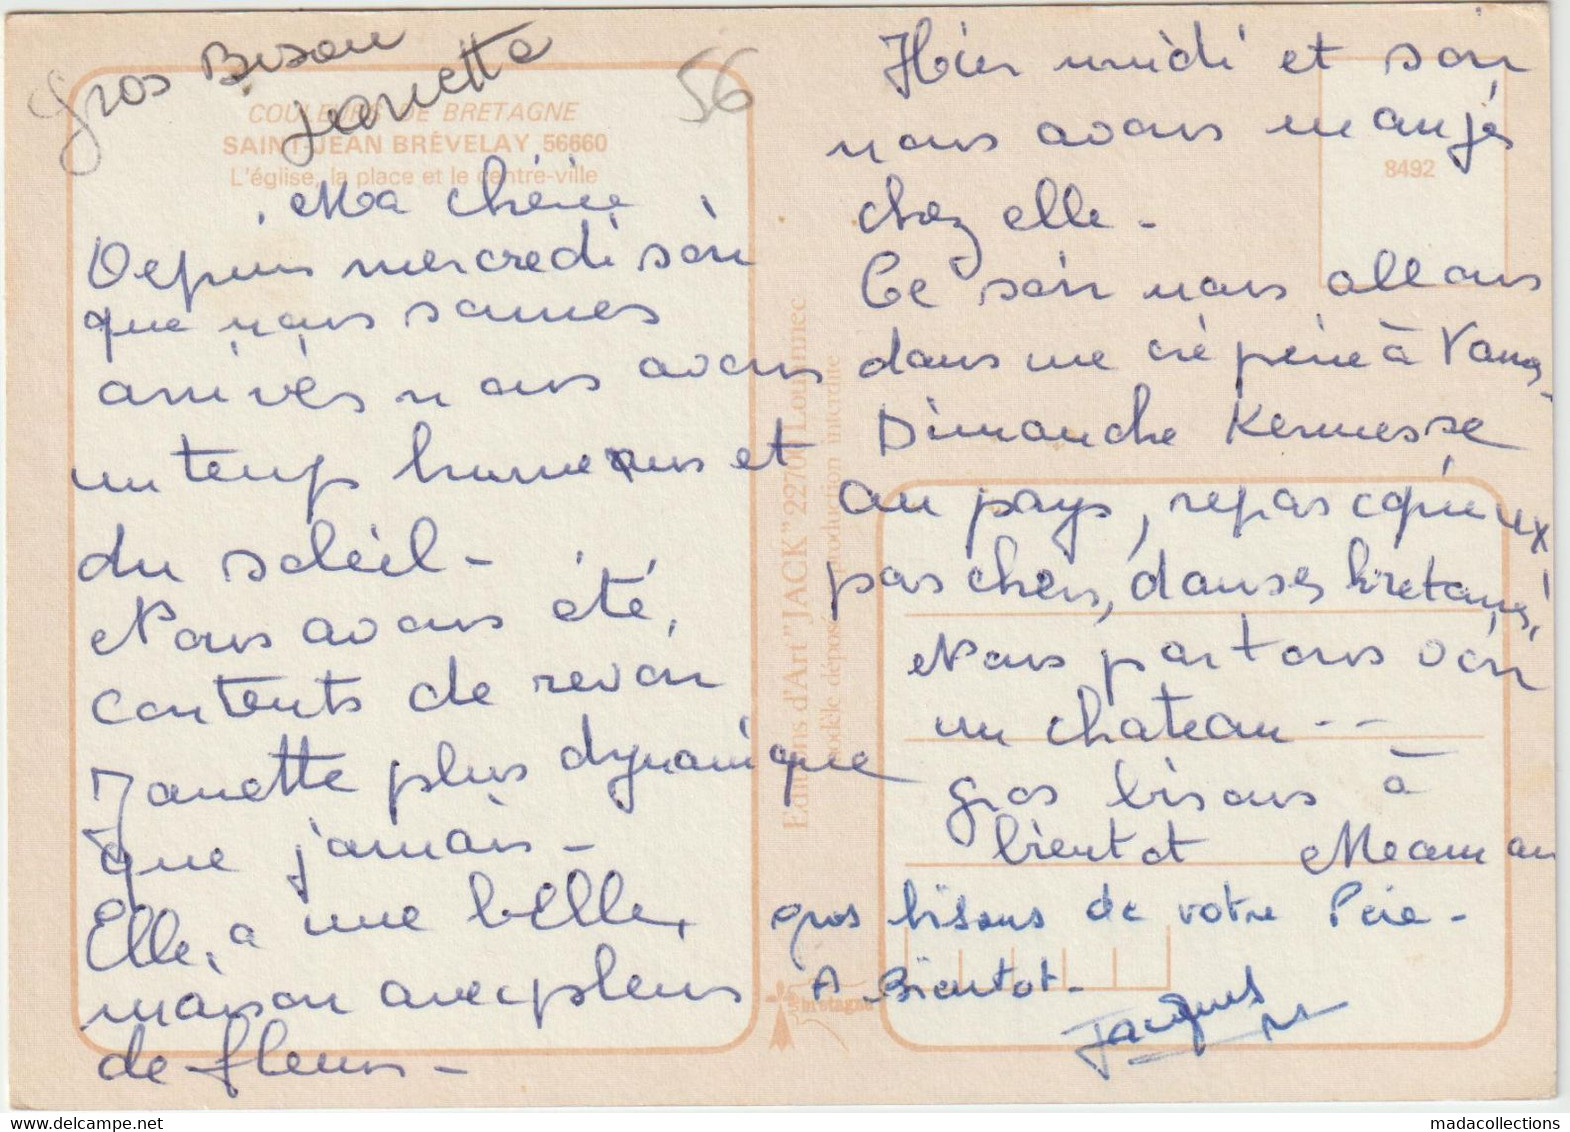 Gros Bisou
Janette
56
COULEURS DE BRETAGNE
SAINT-JEAN BRÉVELAY 56660
L'église, la place et le centre-ville
Ma chérie
Depuis mercredi soir
que nous sommes
arrivés nous avons
un temps lumineux et
du soleil -
Nous avons été,
contents de revoir
Janette plus dynamique
que jamais -
Elle, a une belle,
maison avec pleins
de fleurs -
Editions d'Art "JACK" 22700 Louannec
modèle déposé reproduction interdite
bretagne
8492
Hier midi et soir
nous avons mangés
chez elle -
Ce soir nous allons
dans une crêperie à Vannes -
Dimanche Kermesse
au pays, repas copieux
pas chers, danses bretannes!
Nous partons voir
un chateau - -
gros bisous à
bientot Meaman
gros bisous de votre Père -
A Bientot -
Jacques
madacollections